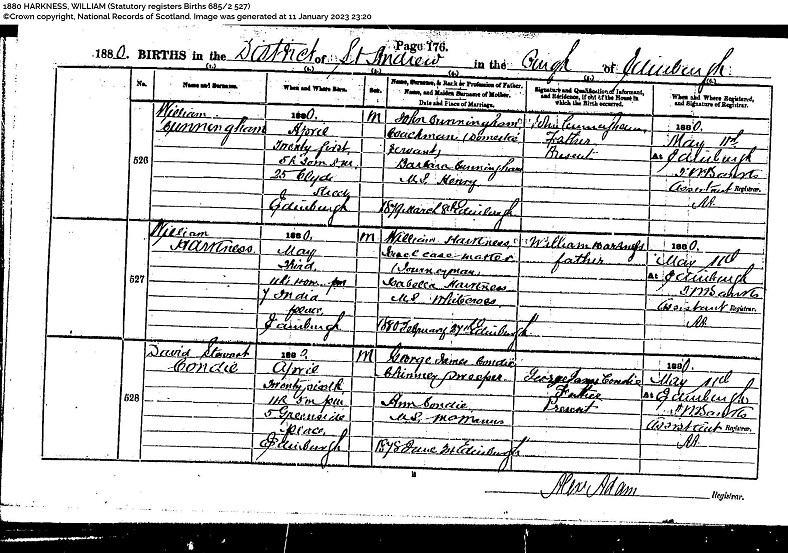 1880 HARKNESS, WILLIAM (Statutory registers Births 685/2 527)
©Crown copyright, National Records of Scotland. Image was generated at 11 January 2023 23:20
Page 176.
1880. BIRTHS in the District of St Andrew in the Burgh of Edinburgh
No.
Name and Surname.
When and Where Born.
Sex.
Name, Surname, & Rank or Profession of Father.
Name, and Maiden Surname of Mother.
Date and Place of Marriage.
Signature and Qualification of Informant,
and Residence, if out of the House in
which the Birth occurred.
When and Where Registered,
and Signature of Registrar.
526
William
Cunningham
1880.
April
Twenty first
5h 30m
25 Clyde
Street
Edinburgh
M
John Cunningham
Coachman (Domestic
Servant)
Barbara Cunningham
M.S. Henry
1879 March 8th Edinburgh
John Cunningham
Father
Present
1880.
May 11th
At Edinburgh
Assistant Registrar.
527
William
Harkness
1880.
May
Third
11h PM
7 India
place
Edinburgh
M
William Harkness
case-maker
(Journeyman)
Isabella Harkness
M.S.
1880 February 27th Edinburgh
William Harkness
father
1880.
May 11th
At Edinburgh
Assistant Registrar.
528
David Stewart
Condie
1880.
April
Twenty sixth
11h 5m PM
5 Greenside
place
Edinburgh
M
George James Condie
Chimney Sweeper
Ann Condie
M.S. McManus
1878 June Edinburgh
George James Condie
Father
Present
1880.
May 11th
At Edinburgh
Assistant Registrar.
Alexr Adam
Registrar.